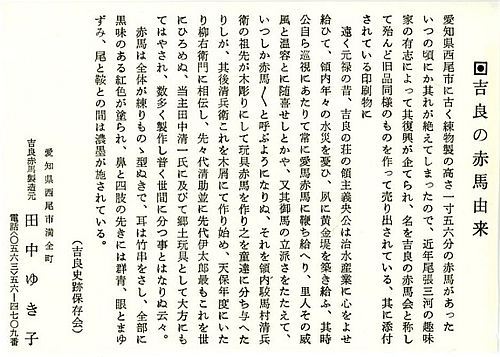 ◉吉良の赤馬由来
愛知県西尾市に古く練物製の高さ一寸五六分の赤馬があった
いつの頃にか其れが絶えてしまったので、近年尾張三河の趣味
家の有志によって其復興が企てられ、名を吉良の赤馬会と称し
て殆んど旧品同様のものを作って売り出されている、其に添付
されている印刷物に
遠く元禄の昔、吉良の荘の領主義央公は治水産業に心をよせ
給ひて、領内年々の水災を憂ひ、夙に黄金堤を築き給ふ、其時
公自ら巡視にあたりて常に愛馬赤馬に鞭ち給へり、里人その威
風と温容とに随喜せしとかや、又其御馬の立派さをたたえて、
いつしか赤馬〱と呼ぶようになりぬ、それを領内駮馬村清兵
衛の祖先が木彫りにして玩具赤馬を作り之を童達に分ち与へた
りしが、其後清兵衛これを木屑にて作り始め、天保年度にいた
り柳右衛門に相伝し、先々代清助並に先代伊太郎最もこれを世
にひろめぬ、当主田中清一氏に及びて郷土玩具として大方にも
てはやされ、数多く製作し普く世間に分つ事とはなりぬ云々。
赤馬は全体が練りもの、型ぬきで、耳は竹串をさし、全部に
黒味のある紅色が塗られ、鼻と四肢の先きには群青、眼とまゆ
ずみ、尾と鞍との間は濃墨が施されている。
(吉良史跡保存会)
愛知県西尾市満全町
吉良赤馬製造元 田中ゆき子
電話〇五六三-五六-四七〇九番